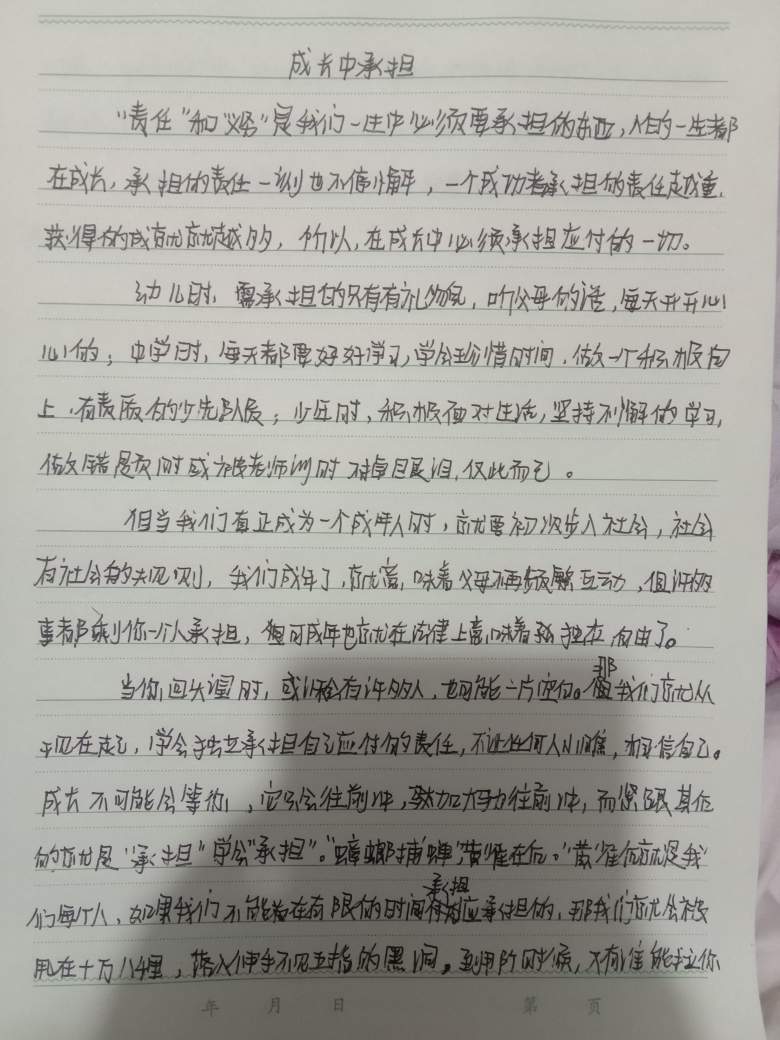 成长中承担
"责任"和"义务"是我们一生中必须要承担的东西，人的一生都
在成长，承担的责任一刻也不停懈，一个成功者承担的责任越重，
获得的成就就越多，所以，在成长中必须承担应付的一切。
幼儿时，需承担的只有有礼貌，听父母的话，每天开开心
心的；中学时，每天都要好好学习，学会珍惜时间，做一个积极向
上，有责任的少先队员；少年时，积极面对生活，坚持不懈的学习，
做错题页时或被老师训时掉目眼泪，仅此而已。
但当我们真正成为一个成年人时，就要初次步入社会，社会
有社会的规则，我们成年了，就意味着父母不再频繁互动，但许多
事都剩你一个人承担，但可成年也就在法律上意味着孤独在自由了。
当你回头望时，或许会有许多人，也可能一片空白。那我们就从
现在起，学会独立承担自己应付的责任，不让任何人为难，相信自己。
成长不可能会等你，它只会往前冲，加大马力往前冲，而紧跟其后
的就是"承担"学会"承担"。"螳螂捕蝉，黄雀在后。"黄雀他就是我
们每个人，如果我们不能在有限的时间承担应承担的，那我们就会被
甩在十万八千里，落入伸手不见五指的黑洞。到那时候，没有谁能拉你
年 月 日 第 页